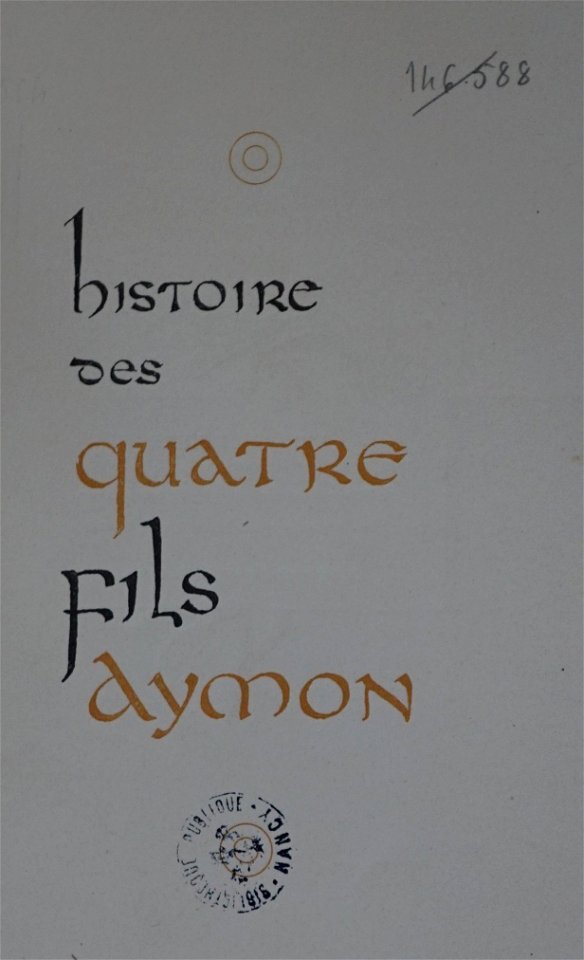 146.588
histoire
des
quatre
fils
aymon
BIBLIOTHEQUE PUBLIQUE · NANCY ·